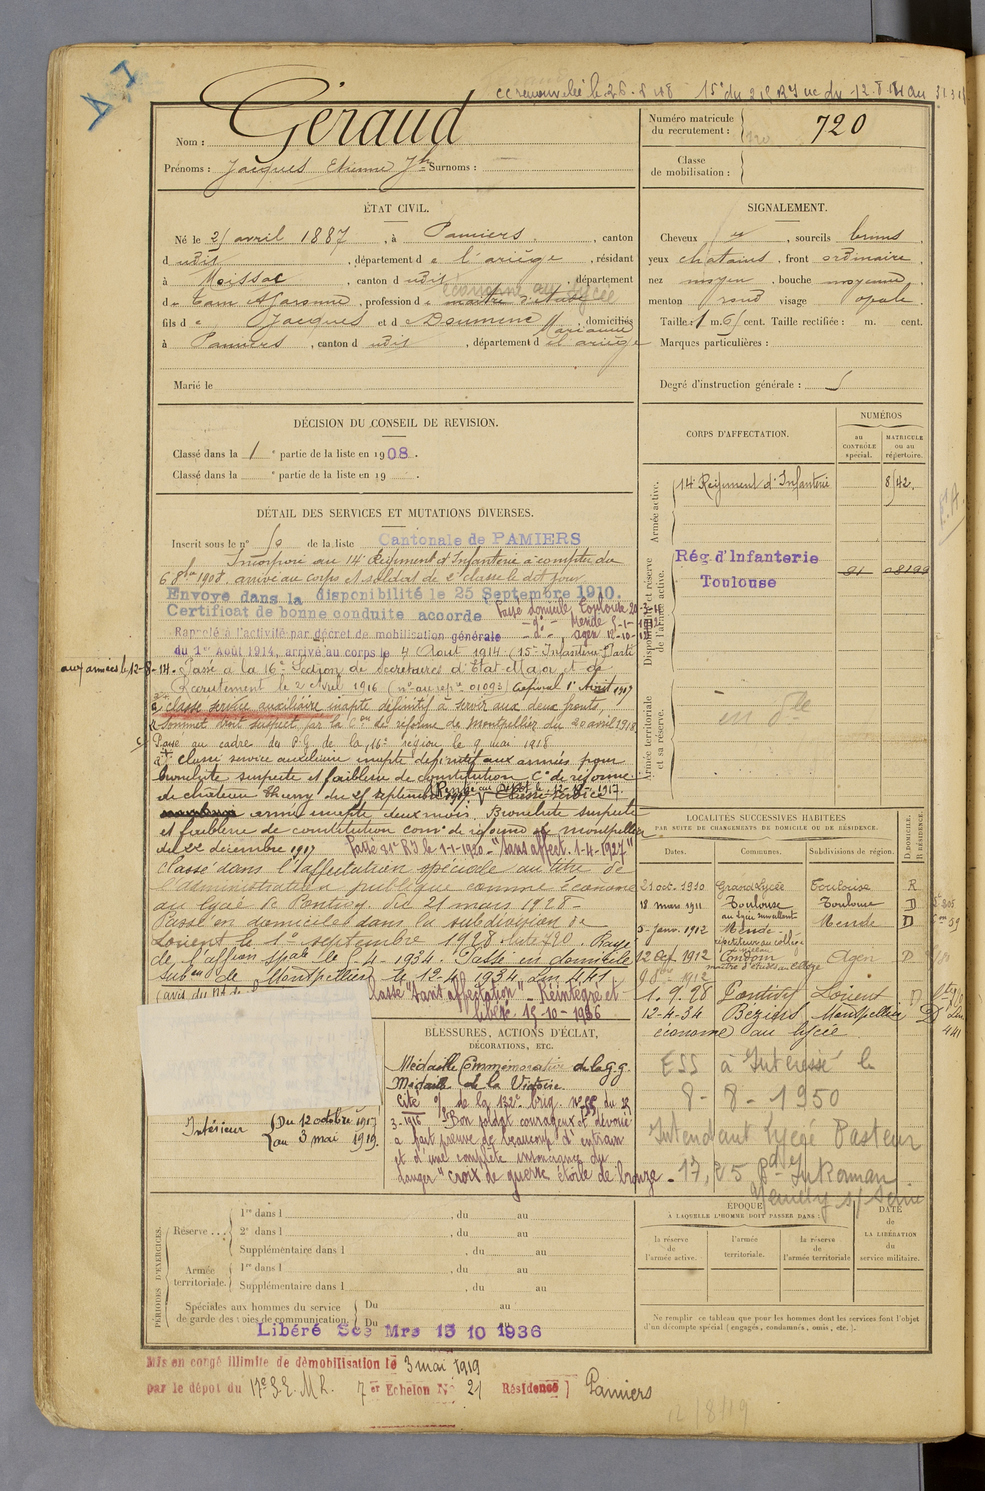 cc renouvelée le 26.8.48 15e du 2 12.8.
Géraud
Nom :
Prénoms : Jacques Etienne Jh Surnoms :
Numéro matricule du recrutement : 720
Classe de mobilisation :
ÉTAT CIVIL.
Né le 25 avril 1887, à Pamiers, canton
dudit, département de l'ariège, résidant
à Moissac, canton dudit, département
de Tarn & Garonne, profession de maître d'étude
économe au lycée
fils de Jacques et de Doumenc Marianne, domiciliés
à Pamiers, canton dudit, département d el ariège
Marié le
SIGNALEMENT.
Cheveux et, sourcils bruns,
yeux chatains, front ordinaire,
nez moyen, bouche moyenne,
menton rond visage ovale.
Taille : 1 m. 65 cent. Taille rectifiée : m. cent.
Marques particulières :
Degré d'instruction générale : 5
DÉCISION DU CONSEIL DE REVISION.
Classé dans la 1e partie de la liste en 1908.
Classé dans la e partie de la liste en 19 .
DÉTAIL DES SERVICES ET MUTATIONS DIVERSES.
Inscrit sous le n° 50 de la liste Cantonale de PAMIERS
Incorporé au 14e Régiment d'Infanterie à compter du
6 8bre 1908. arrivé au corps et soldat de 2e classe le dit jour
Envoyé dans la disponibilité le 25 Septembre 1910.
Certificat de bonne conduite accordé
Passé domicile Toulouse
-d°- Mende 5-1-1912
-d°- Agen 12-10-12
Rappelé à l'activité par décret de mobilisation générale
du 1er Août 1914, arrivé au corps le 4 Août 1914 (15e Infanterie) Parti
aux armées le 12-8-14. Passé à la 16e Section de secrétaires d'Etat Major et de
Recrutement le 2 Avril 1916 (no au rep. 01093) Caporal 1er Avril 1917
classé service auxiliaire inapte définitif à servir aux deux fronts,
Sommet droit suspect par la Con de réforme de Montpellier du 20 avril 1918
Passé au cadre du P.G. de la 16e région le 9 mai 1918
Classé service auxiliaire inapte définitif aux armées pour
bronchite suspecte et faiblesse de constitution Con de réforme
de chateau Thierry du 25 septembre 1917. Classé service
armé inapte deux mois. Bronchite suspecte
et faiblesse de constitution Com. de réforme de Montpellier
du 22 décembre 1917 Passé 21e RI le 1-1-1920 - "sans affect. 1-4-1927"
Classé dans l'affectation spéciale au titre de
l'administration publique comme économe
au lycée de Pontivy du 21 mars 1928 -
Passé en domicile dans la subdivision de
Lorient le 1er septembre 1928 liste 720. Rayé
de l'affon spale le 5-4-1934. Passé en domicile
subon de Montpellier le 12.4.1934 Ln 441
classé "sans affectation" - Réintégré et
libéré 15-10-1936
CORPS D'AFFECTATION.
NUMÉROS
au CONTRÔLE spécial.
MATRICULE ou au répertoire.
Armée active.
14e Régiment d'Infanterie 8542.
Disponibilité et réserve de l'armée active.
Rég. d'Infanterie
Toulouse
Armée territoriale et sa réserve.
LOCALITÉS SUCCESSIVES HABITÉES
PAR SUITE DE CHANGEMENTS DE DOMICILE OU DE RÉSIDENCE.
Dates. Communes. Subdivisions de région. D. DOMICILE. R. RÉSIDENCE.
21 oct. 1910 Grand lycée Toulouse R
18 mars 1911 Toulouse Toulouse D
5 janv. 1912 Mende Mende D
répétiteur au collège
12 Oct 1912 Condom Agen D
maître d'études au collège
1.9.28 Pontivy Lorient D
12-4-34 Béziers Montpellier D Ln 441
économe au lycée
ESS à Intéressé le
8-8-1950
Intendant lycée Pasteur
17, 25 Bd d'Inkerman
Neuilly s/ Seine
Intérieur (Du 12 octobre 1917
au 3 mai 1919.
BLESSURES, ACTIONS D'ÉCLAT,
DÉCORATIONS, ETC.
Médaille Commémorative de la g.g.
Médaille de la Victoire.
Cité O/ de la 132e brig. du 25
3-1916 "Bon soldat courageux et dévoué
a fait preuve de beaucoup d'entrain
et d'une complète insouciance du
danger" croix de guerre étoile de bronze.
PÉRIODES D'EXERCICES.
Réserve... 1re dans l , du au
2e dans l , du au
Supplémentaire dans l , du au
Armée territoriale. 1re dans l , du au
Supplémentaire dans l , du au
Spéciales aux hommes du service de garde des voies de communication. Du au
Du
Libéré Sce Mre 15 10 1936
ÉPOQUE
À LAQUELLE L'HOMME DOIT PASSER DANS :
la réserve de l'armée active.
l'armée territoriale.
la réserve de l'armée territoriale
DATE DE LA LIBÉRATION du service militaire.
Ne remplir ce tableau que pour les hommes dont les services font l'objet
d'un décompte spécial (engagés, condamnés, omis, etc.).
Mis en congé illimité de démobilisation le 3 mai 1919
par le dépôt du 7e Echelon N° 21 Résidence Pamiers
12/8/19